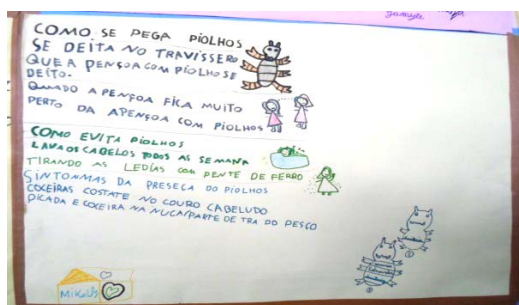 COMO SE PEGA PIOLHOS
SE DEITA NO TRAVISSERO
QUE A PENÇOA COM PIOLHO SE
DEITO.
QUANDO APENÇOA FICA MUITO
PERTO DA APENÇOA COM PIOLHOS
COMO EVITA PIOLHOS
LAVA OS CABELOS TODOS AS SEMANA
TIRANDO AS LEDIAS COM PENTE DE FERRO
SINTONMAS DA PRESEÇA DO PIOLHOS
COCEIRAS COSTATE NO COURO CABELUDO
PICADA E COCEIRA NA NUCA/PARTE DE TRA DO PESCO